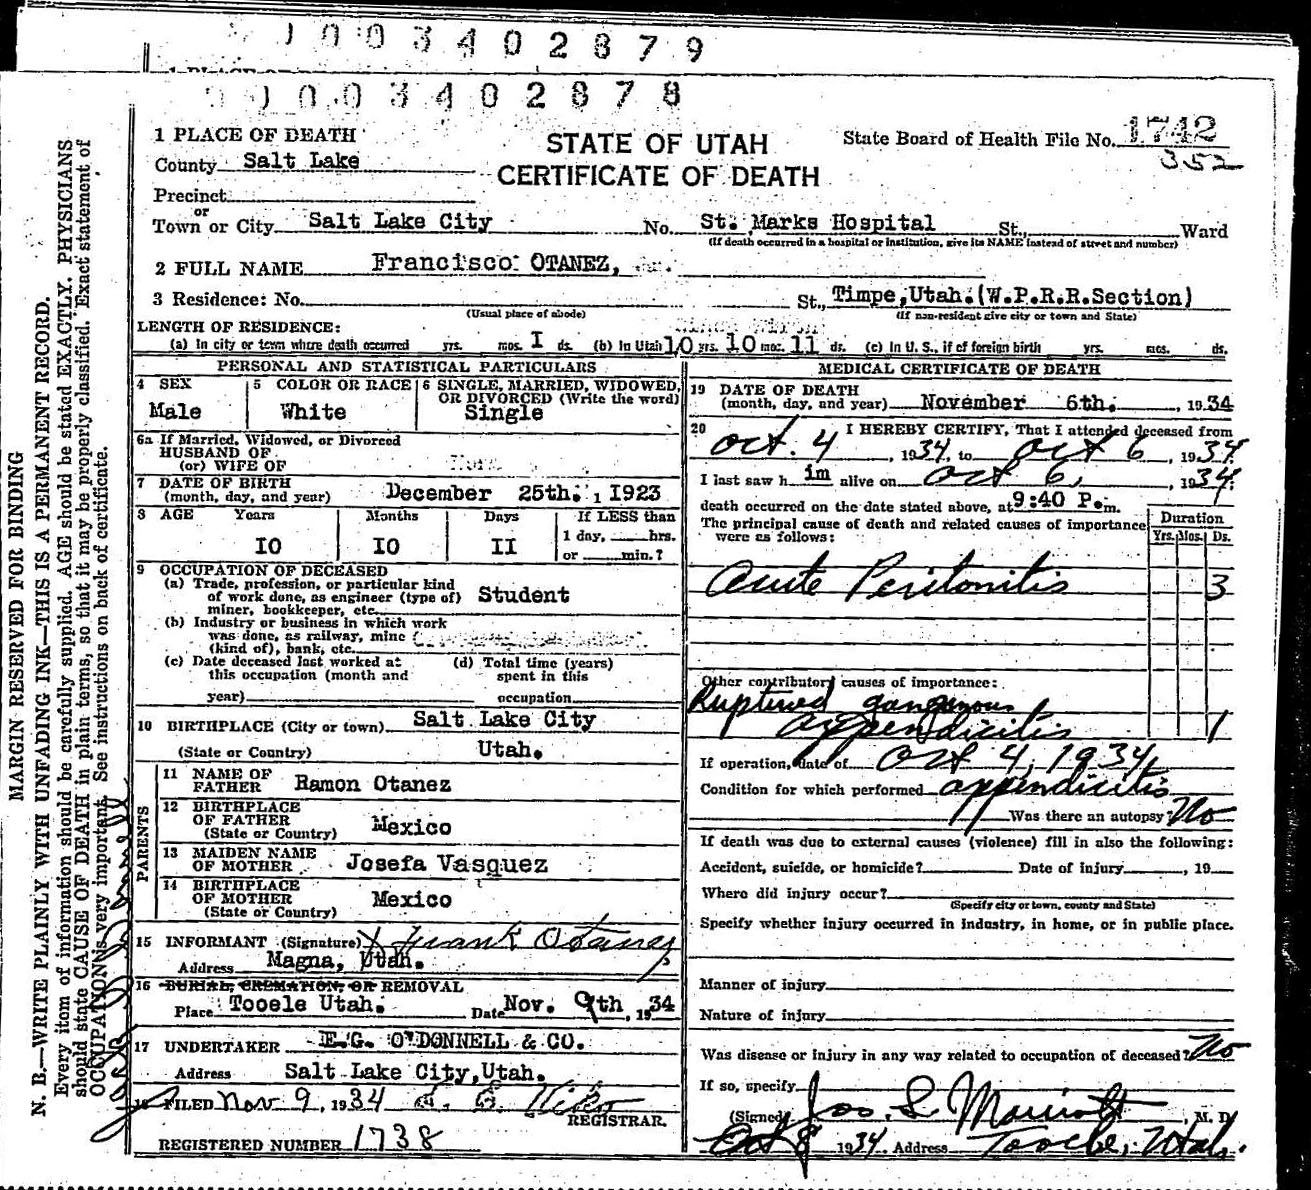 1003402879
1003402878
1 PLACE OF DEATH
STATE OF UTAH
CERTIFICATE OF DEATH
State Board of Health File No. 1742
352
County Salt Lake
Precinct
or
Town or City Salt Lake City No. St. Marks Hospital St., Ward
(If death occurred in a hospital or institution, give its NAME instead of street and number)
2 FULL NAME Francisco OTANEZ,
3 Residence: No. St., Timpe,Utah.(W.P.R.R.Section)
(Usual place of abode) (If non-resident give city or town and State)
LENGTH OF RESIDENCE:
(a) In city or town where death occurred yrs. mos. I ds. (b) In Utah 10 yrs. 10 mos. 11 ds. (c) In U. S., if of foreign birth yrs. mos. ds.
PERSONAL AND STATISTICAL PARTICULARS
4 SEX
Male
5 COLOR OR RACE
White
6 SINGLE, MARRIED, WIDOWED,
OR DIVORCED (Write the word)
Single
6a If Married, Widowed, or Divorced
HUSBAND OF
(or) WIFE OF
7 DATE OF BIRTH
(month, day, and year) December 25th. , 1923
8 AGE Years Months Days If LESS than
1 day, hrs.
or min.?
IO IO II
9 OCCUPATION OF DECEASED
(a) Trade, profession, or particular kind
of work done, as engineer (type of) Student
miner, bookkeeper, etc.
(b) Industry or business in which work
was done, as railway, mine
(kind of), bank, etc.
(c) Date deceased last worked at
this occupation (month and
year)
(d) Total time (years)
spent in this
occupation
10 BIRTHPLACE (City or town) Salt Lake City
(State or Country) Utah.
PARENTS
11 NAME OF
FATHER Ramon Otanez
12 BIRTHPLACE
OF FATHER Mexico
(State or Country)
13 MAIDEN NAME
OF MOTHER Josefa Vasquez
14 BIRTHPLACE
OF MOTHER Mexico
(State or Country)
15 INFORMANT (Signature) x Frank Otanez
Address Magna, Utah.
16 BURIAL, CREMATION, OR REMOVAL
Place Tooele Utah. Date Nov. 9th , 1934
17 UNDERTAKER E.G. O'DONNELL & CO.
Address Salt Lake City,Utah.
18 FILED Nov 9, 1934
REGISTRAR.
REGISTERED NUMBER 1738
MEDICAL CERTIFICATE OF DEATH
19 DATE OF DEATH
(month, day, and year) November 6th. , 1934
20 I HEREBY CERTIFY, That I attended deceased from
Oct. 4 , 1934, to Oct 6 , 1934.
I last saw h im alive on Oct 6, , 1934.
death occurred on the date stated above, at 9:40 P.m.
The principal cause of death and related causes of importance
were as follows:
Duration
Yrs. Mos. Ds.
Acute Peritonitis 3
Other contributory causes of importance:
Ruptured gangrenous
appendicitis 1
If operation, date of Oct 4, 1934,
Condition for which performed appendicitis
Was there an autopsy? No
If death was due to external causes (violence) fill in also the following:
Accident, suicide, or homicide? Date of injury , 19
Where did injury occur?
(Specify city or town, county and State)
Specify whether injury occurred in industry, in home, or in public place.
Manner of injury
Nature of injury
Was disease or injury in any way related to occupation of deceased? No
If so, specify
(Signed) Jos. L. Marriott , M. D.
Oct 8 1934. Address Tooele, Utah.
MARGIN RESERVED FOR BINDING
N. B.—WRITE PLAINLY WITH UNFADING INK—THIS IS A PERMANENT RECORD.
Every item of information should be carefully supplied. AGE should be stated EXACTLY. PHYSICIANS
should state CAUSE OF DEATH in plain terms, so that it may be properly classified. Exact statement of
OCCUPATION is very important. See instructions on back of certificate.